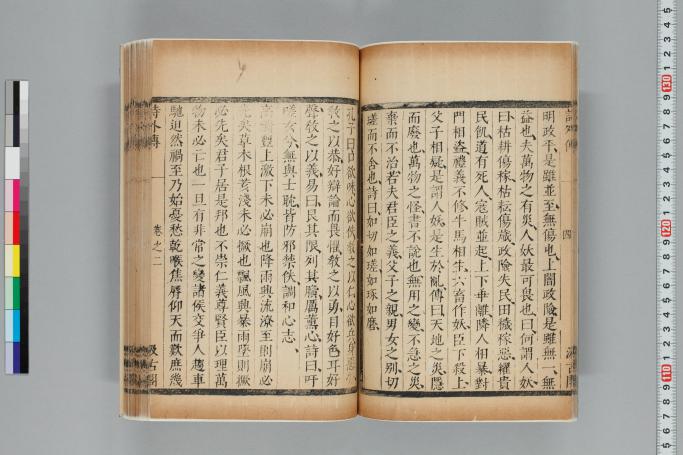 明政平是雖並至無傷也上闇政險是雖無一無
益也夫萬物之有災人妖最可畏也曰何謂人妖
曰枯耕傷稼枯耘傷歲政險失民田穢稼惡糴貴
民飢道有死人寇賊並起上下乖離隣人相暴對
門相盜禮義不修牛馬相生六畜作妖臣下殺上
父子相疑是謂人妖是生於亂傳曰天地之災隱
而廢也萬物之怪書不說也無用之變不急之災
棄而不治若夫君臣之義父子之親男女之別切
瑳而不舍也詩曰如切如瑳如琢如磨
孔子曰口欲味心欲佚教之以仁心欲兵身惡
教之以恭好辯論而畏懼教之以勇目好色耳好
聲教之以義易曰艮其限列其䏖厲薰心詩曰吁
嗟女兮無與士耽皆防邪禁佚調和心志
高牆豐上激下未必崩也降雨興流潦至則崩必
先矣草木根荄淺未必撅也飄風興暴雨墜則撅
必先矣君子居是邦也不崇仁義尊賢臣以理萬
物未必亡也一旦有非常之變諸侯交爭人趨車
馳迫然禍至乃始憂愁乾喉焦脣仰天而歎庶幾
詩外傳
卷之二
汲古閣
130
120
110